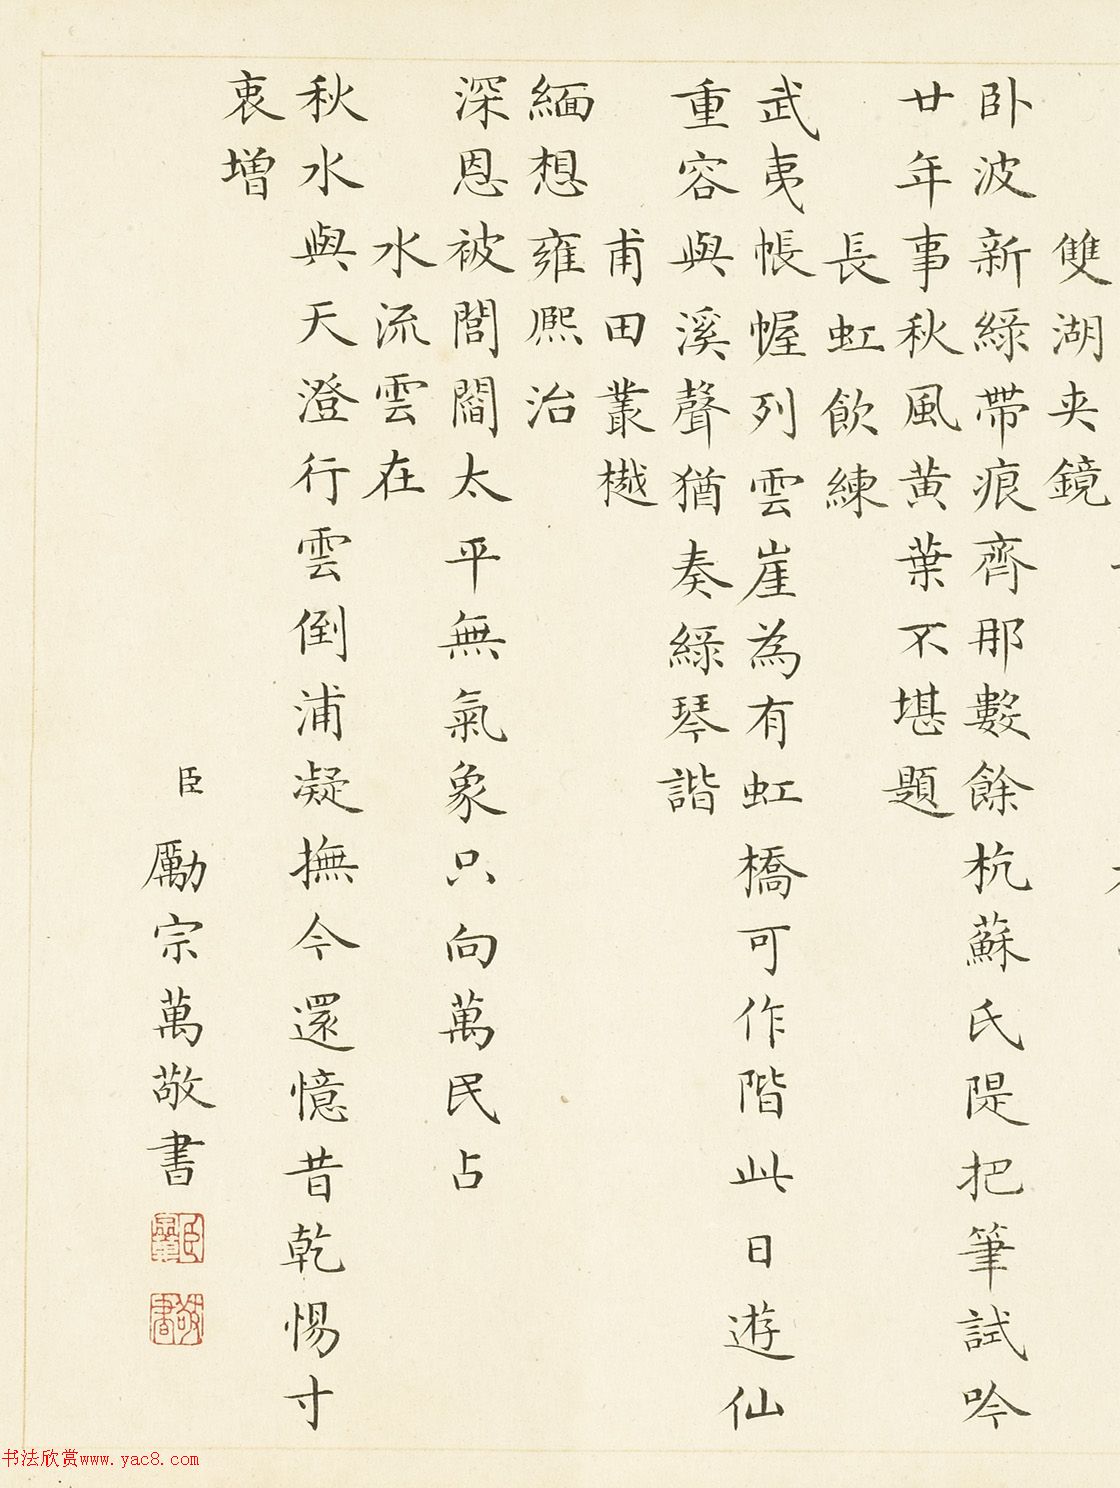 雙湖夾鏡
卧波新綠帶痕齊那數餘杭蘇氏隄把筆試吟
廿年事秋風黄葉不堪題
長虹飲練
武夷帳幄列雲崖為有虹橋可作階此日遊仙
重容與溪聲猶奏綠琴諧
甫田叢樾
緬想雍熈治
深恩被閭閻太平無氣象只向萬民占
水流雲在
秋水與天澄行雲倒浦凝撫今還憶昔乾惕寸
衷增
臣勵宗萬敬書
臣宗萬
敬書
书法欣赏www.yac8.com